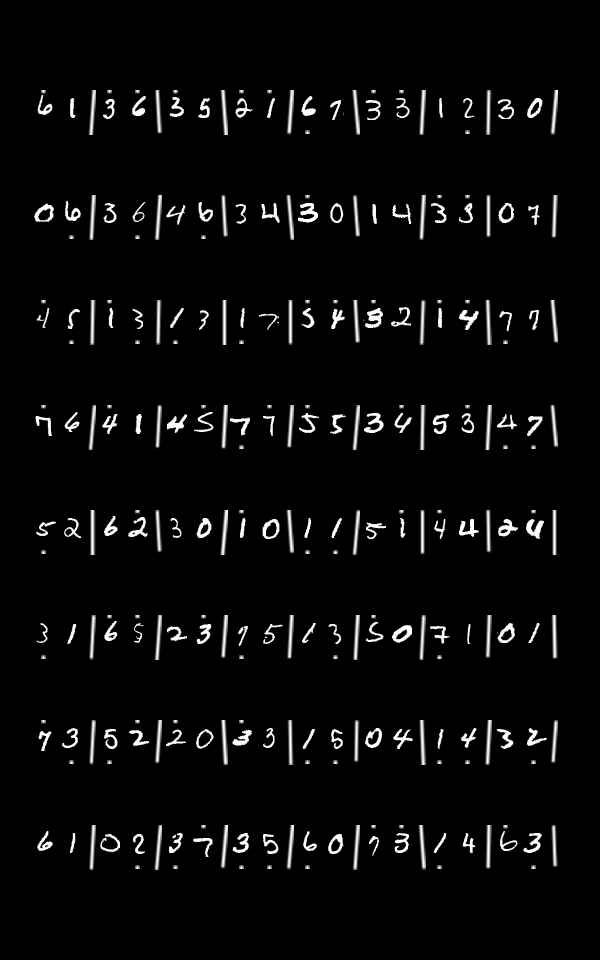 6̇ 1 | 3̇ 6̇ | 3̇ 5 | 2̇ 1̇ | 6̣ 7 | 3̇ 3̇ | 1 2̣ | 3 0 |
0 6̣ | 3 6̣ | 4 6̣ | 3 4 | 3̇ 0 | 1 4 | 3̇ 3̇ | 0 7 |
4̇ 5̣ | 1̇ 3̣ | 1̣ 3 | 1̣ 7 | 5̇ 4̇ | 3̇ 2 | 1̇ 4̇ | 7̣ 7 |
7̇ 6 | 4̇ 1 | 4 5̇ | 7̣ 7̇ | 5̇ 5 | 3 4̇ | 5 3̇ | 4̣ 7̣ |
5̣ 2 | 6 2̇ | 3 0 | 1̇ 0 | 1̣ 1̣ | 5 1̇ | 4̇ 4 | 2 4̇ |
3̣ 1 | 6̇ 5̇ | 2 3̇ | 7̣ 5 | 1 3̣ | 5̇ 0 | 7̣ 1 | 0 1 |
7̇ 3̣ | 5̣ 2̇ | 2̇ 0 | 3̇ 3 | 1̣ 5̣ | 0 4 | 1̣ 4̣ | 3 2̣ |
6 1 | 0 2̣ | 3̣ 7̇ | 3̣ 5̣ | 6̣ 0 | 7̇ 3̇ | 1̣ 4 | 6̇ 3̣ |